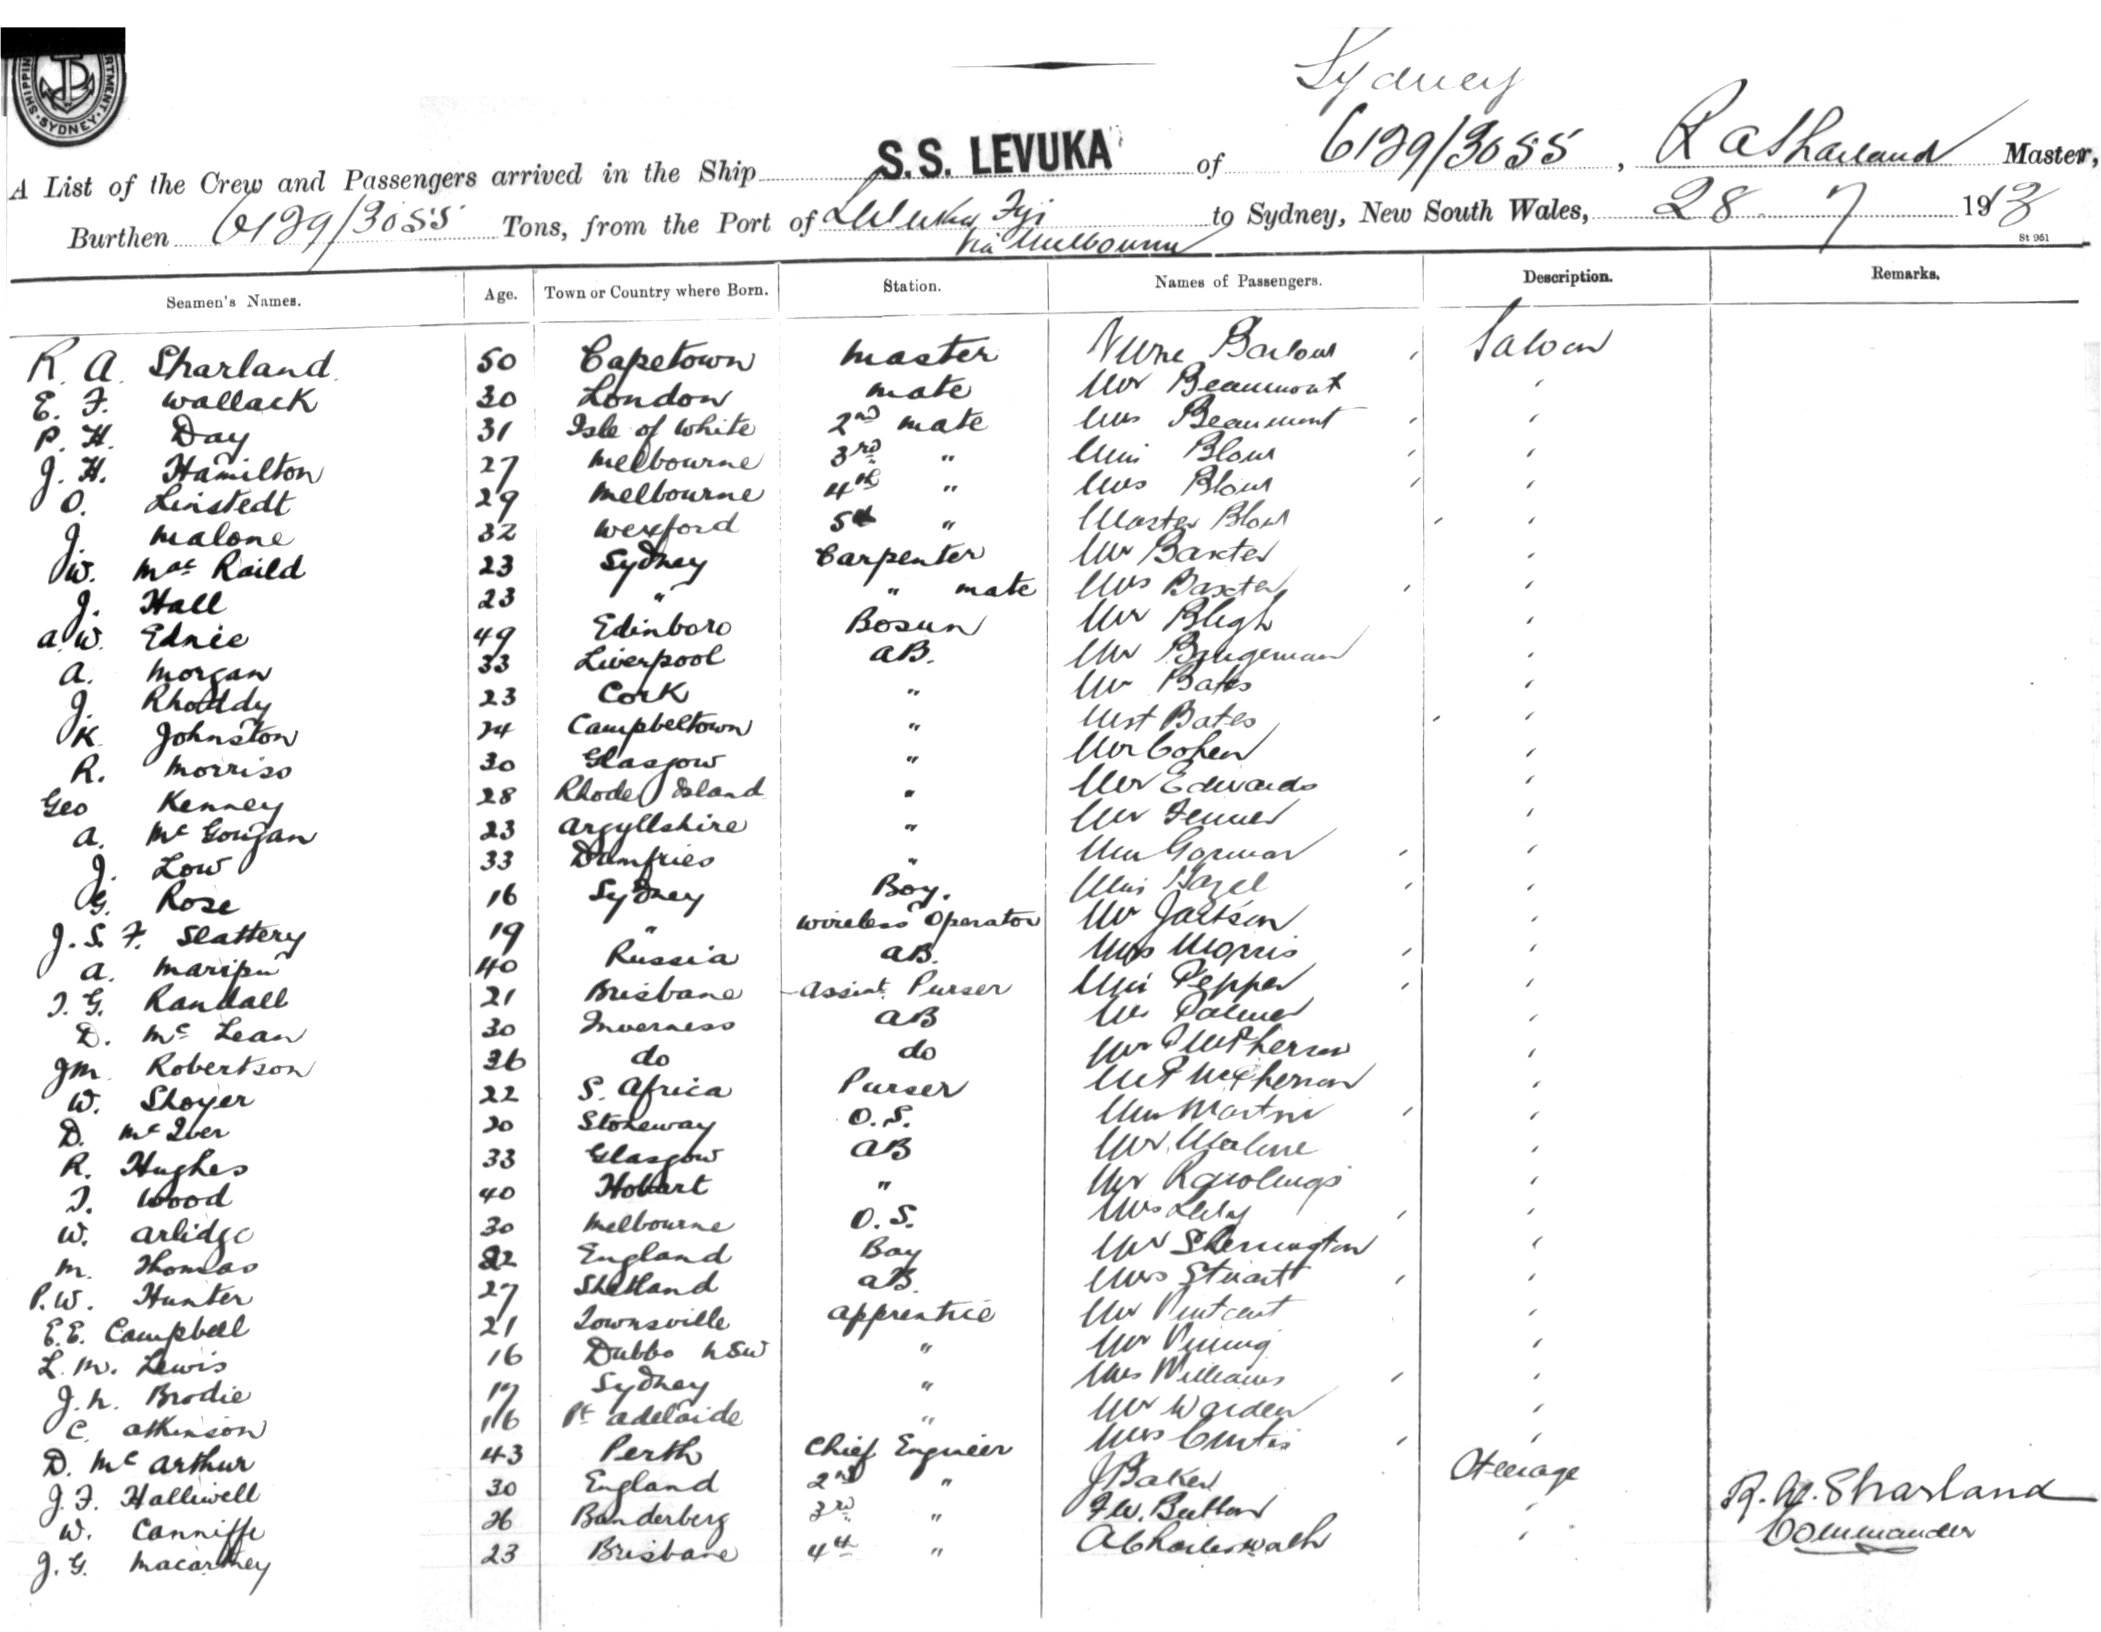 SHIPPIN RTMENT SYDNEY
Sydney
A List of the Crew and Passengers arrived in the Ship S.S. LEVUKA of 6129/3055, R A Sharland Master,
Burthen 6129/3055 Tons, from the Port of Levuka Fiji via Melbourne to Sydney, New South Wales, 28 7 1913
St 961
Seamen's Names. Age. Town or Country where Born. Station. Names of Passengers. Description. Remarks.
R. A. Sharland 50 Capetown Master Barlow Saloon
E. F. Wallack 30 London mate Mr Beaumont '
P. H. Day 31 Isle of White 2nd mate Mrs Beaumont '
J. H. Hamilton 27 Melbourne 3rd " Miss Blow '
O. Linstedt 29 Melbourne 4th " Mrs Blow '
J. Malone 32 Wexford 5th " Master Blow '
W. Mac Raild 23 Sydney Carpenter Mr Baxter '
J. Hall 23 " " mate Mrs Baxter '
A. W. Ednie 49 Edinboro Bosun Mr Bligh '
A. Morgan 33 Liverpool AB. Mr '
J. 23 Cork " Mr Bates '
K. Johnston 24 Campbeltown " Bates '
R. Morriso 30 Glasgow " Mr Cohen '
Geo Kenney 28 Rhode Island " Mr Edwards '
A. Mc Gougan 23 Argyllshire " Mr Fenner '
J. Low 33 Dumfries " Gorman '
G. Rose 16 Sydney Boy. Miss Hazel '
J. S. F. Slattery 19 " Wireless Operator Mr Jackson '
A. 40 Russia AB. Mrs Morris '
T. G. Randall 21 Brisbane Assist. Purser Miss Pepper '
D. Mc Lean 30 Inverness AB Mr Palmer '
J M Robertson 36 do do Mr McPherson '
W. Shoyer 22 S. Africa Purser McPherson '
D. Mc Iver 20 Stoneway O.S. Martin '
R. Hughes 33 Glasgow AB Mr Malone '
T. Wood 40 Hobart " Mr Rawlings '
W. Arlidge 30 Melbourne O.S. Mrs '
M. Thomas 22 England Boy Mr Sherrington '
P. W. Hunter 27 Shetland AB. Mrs Stuart '
E. E. Campbell 21 Townsville Apprentice Mr '
L. M. Lewis 16 Dubbo NSW " Mr Vining '
J. N. Brodie 17 Sydney " Mrs Williams '
C. Atkinson 16 Pt Adelaide " Mr Warden '
D. Mc Arthur 43 Perth Chief Engineer Mrs Curtis '
J. F. Halliwell 30 England 2nd " J Baker Steerage R. A. Sharland
W. Canniffe 26 Bunderberg 3rd " F W. Button ' Commander
J. G. Macartney 23 Brisbane 4th " A Charlesworth '